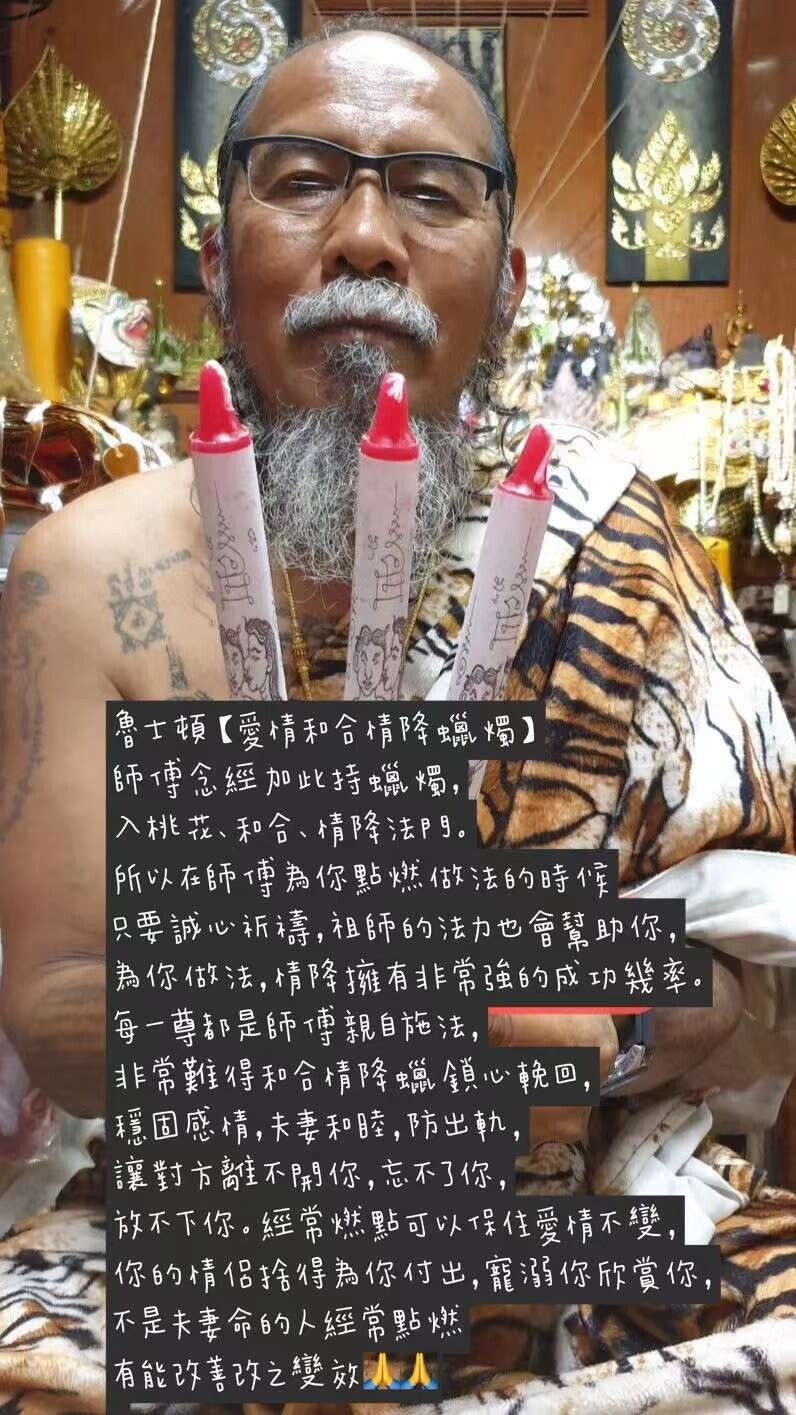 魯士頓【愛情和合情降蠟燭】
師傅念經加此持蠟燭,
入桃花、和合、情降法門。
所以在師傅為你點燃做法的時候
只要誠心祈禱,祖師的法力也會幫助你,
為你做法,情降擁有非常強的成功幾率。
每一尊都是師傅親自施法,
非常難得和合情降蠟鎖心輓回,
穩固感情,夫妻和睦,防出軌,
讓對方離不開你,忘不了你,
放不下你。經常燃點可以保住愛情不變,
你的情侶捨得為你付出,寵溺你欣賞你,
不是夫妻命的人經常點燃
有能改善改之變效🙏🙏